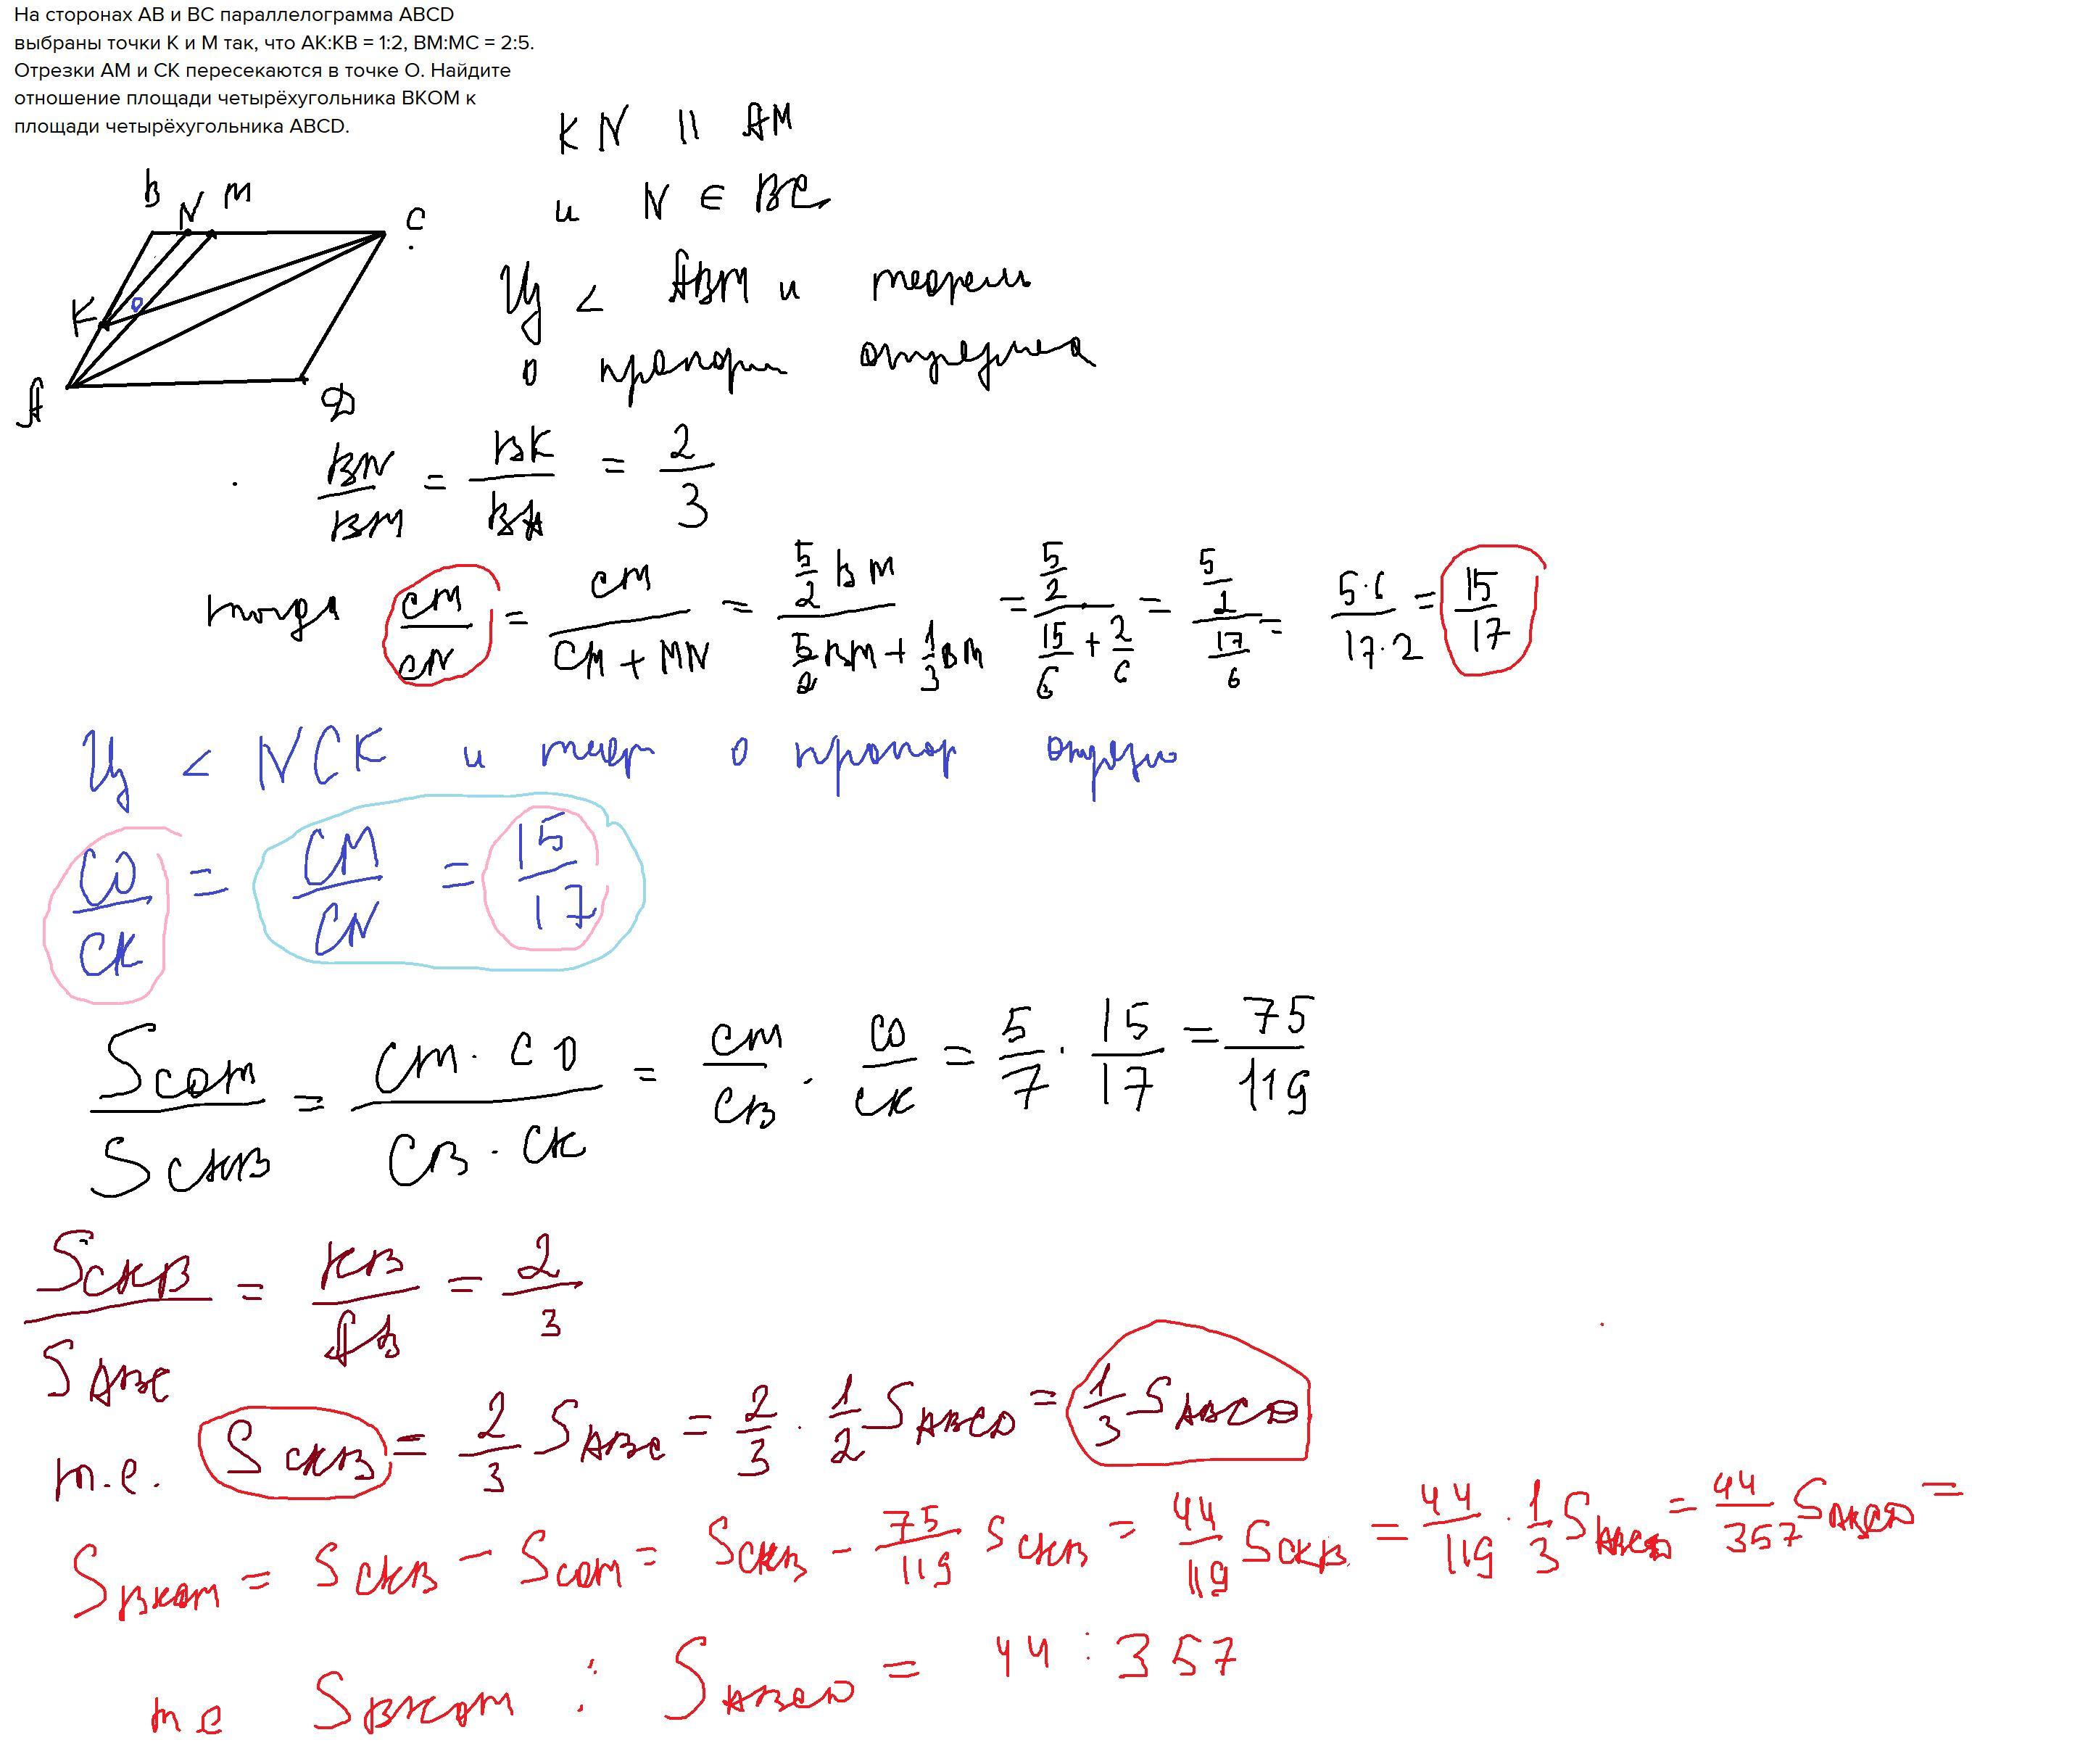 На сторонах АВ и ВС параллелограмма ABCD
выбраны точки К и М так, что АК:КВ = 1:2, ВМ:МС = 2:5.
Отрезки АМ и СК пересекаются в точке О. Найдите
отношение площади четырёхугольника ВКОМ к
площади четырёхугольника ABCD.
KN || AM
и N ∈ BC
B N M C
K O
A D
Из < ABM и
о пропорц
BN/BM = BK/BA = 2/3
тогда CM/CN = CM/(CM + MN) = (5/2 BM)/(5/2 BM + 1/3 BM) = (5/2)/(15/6 + 2/6) = (5/2)/(17/6) = (5·6)/(17·2) = 15/17
Из < NCK и теор о пропор отрезко
CO/CK = CM/CN = 15/17
S COM / S CKB = (CM · CO)/(CB · CK) = CM/CB · CO/CK = 5/7 · 15/17 = 75/119
S CKB / S ABC = KB/AB = 2/3
т.е. S CKB = 2/3 S ABC = 2/3 · 1/2 S ABCD = 1/3 S ABCD
S BKOM = S CKB − S COM = S CKB − 75/119 S CKB = 44/119 S CKB = 44/119 · 1/3 S ABCD = 44/357 S ABCD =
т е S BKOM : S ABCD = 44 : 357